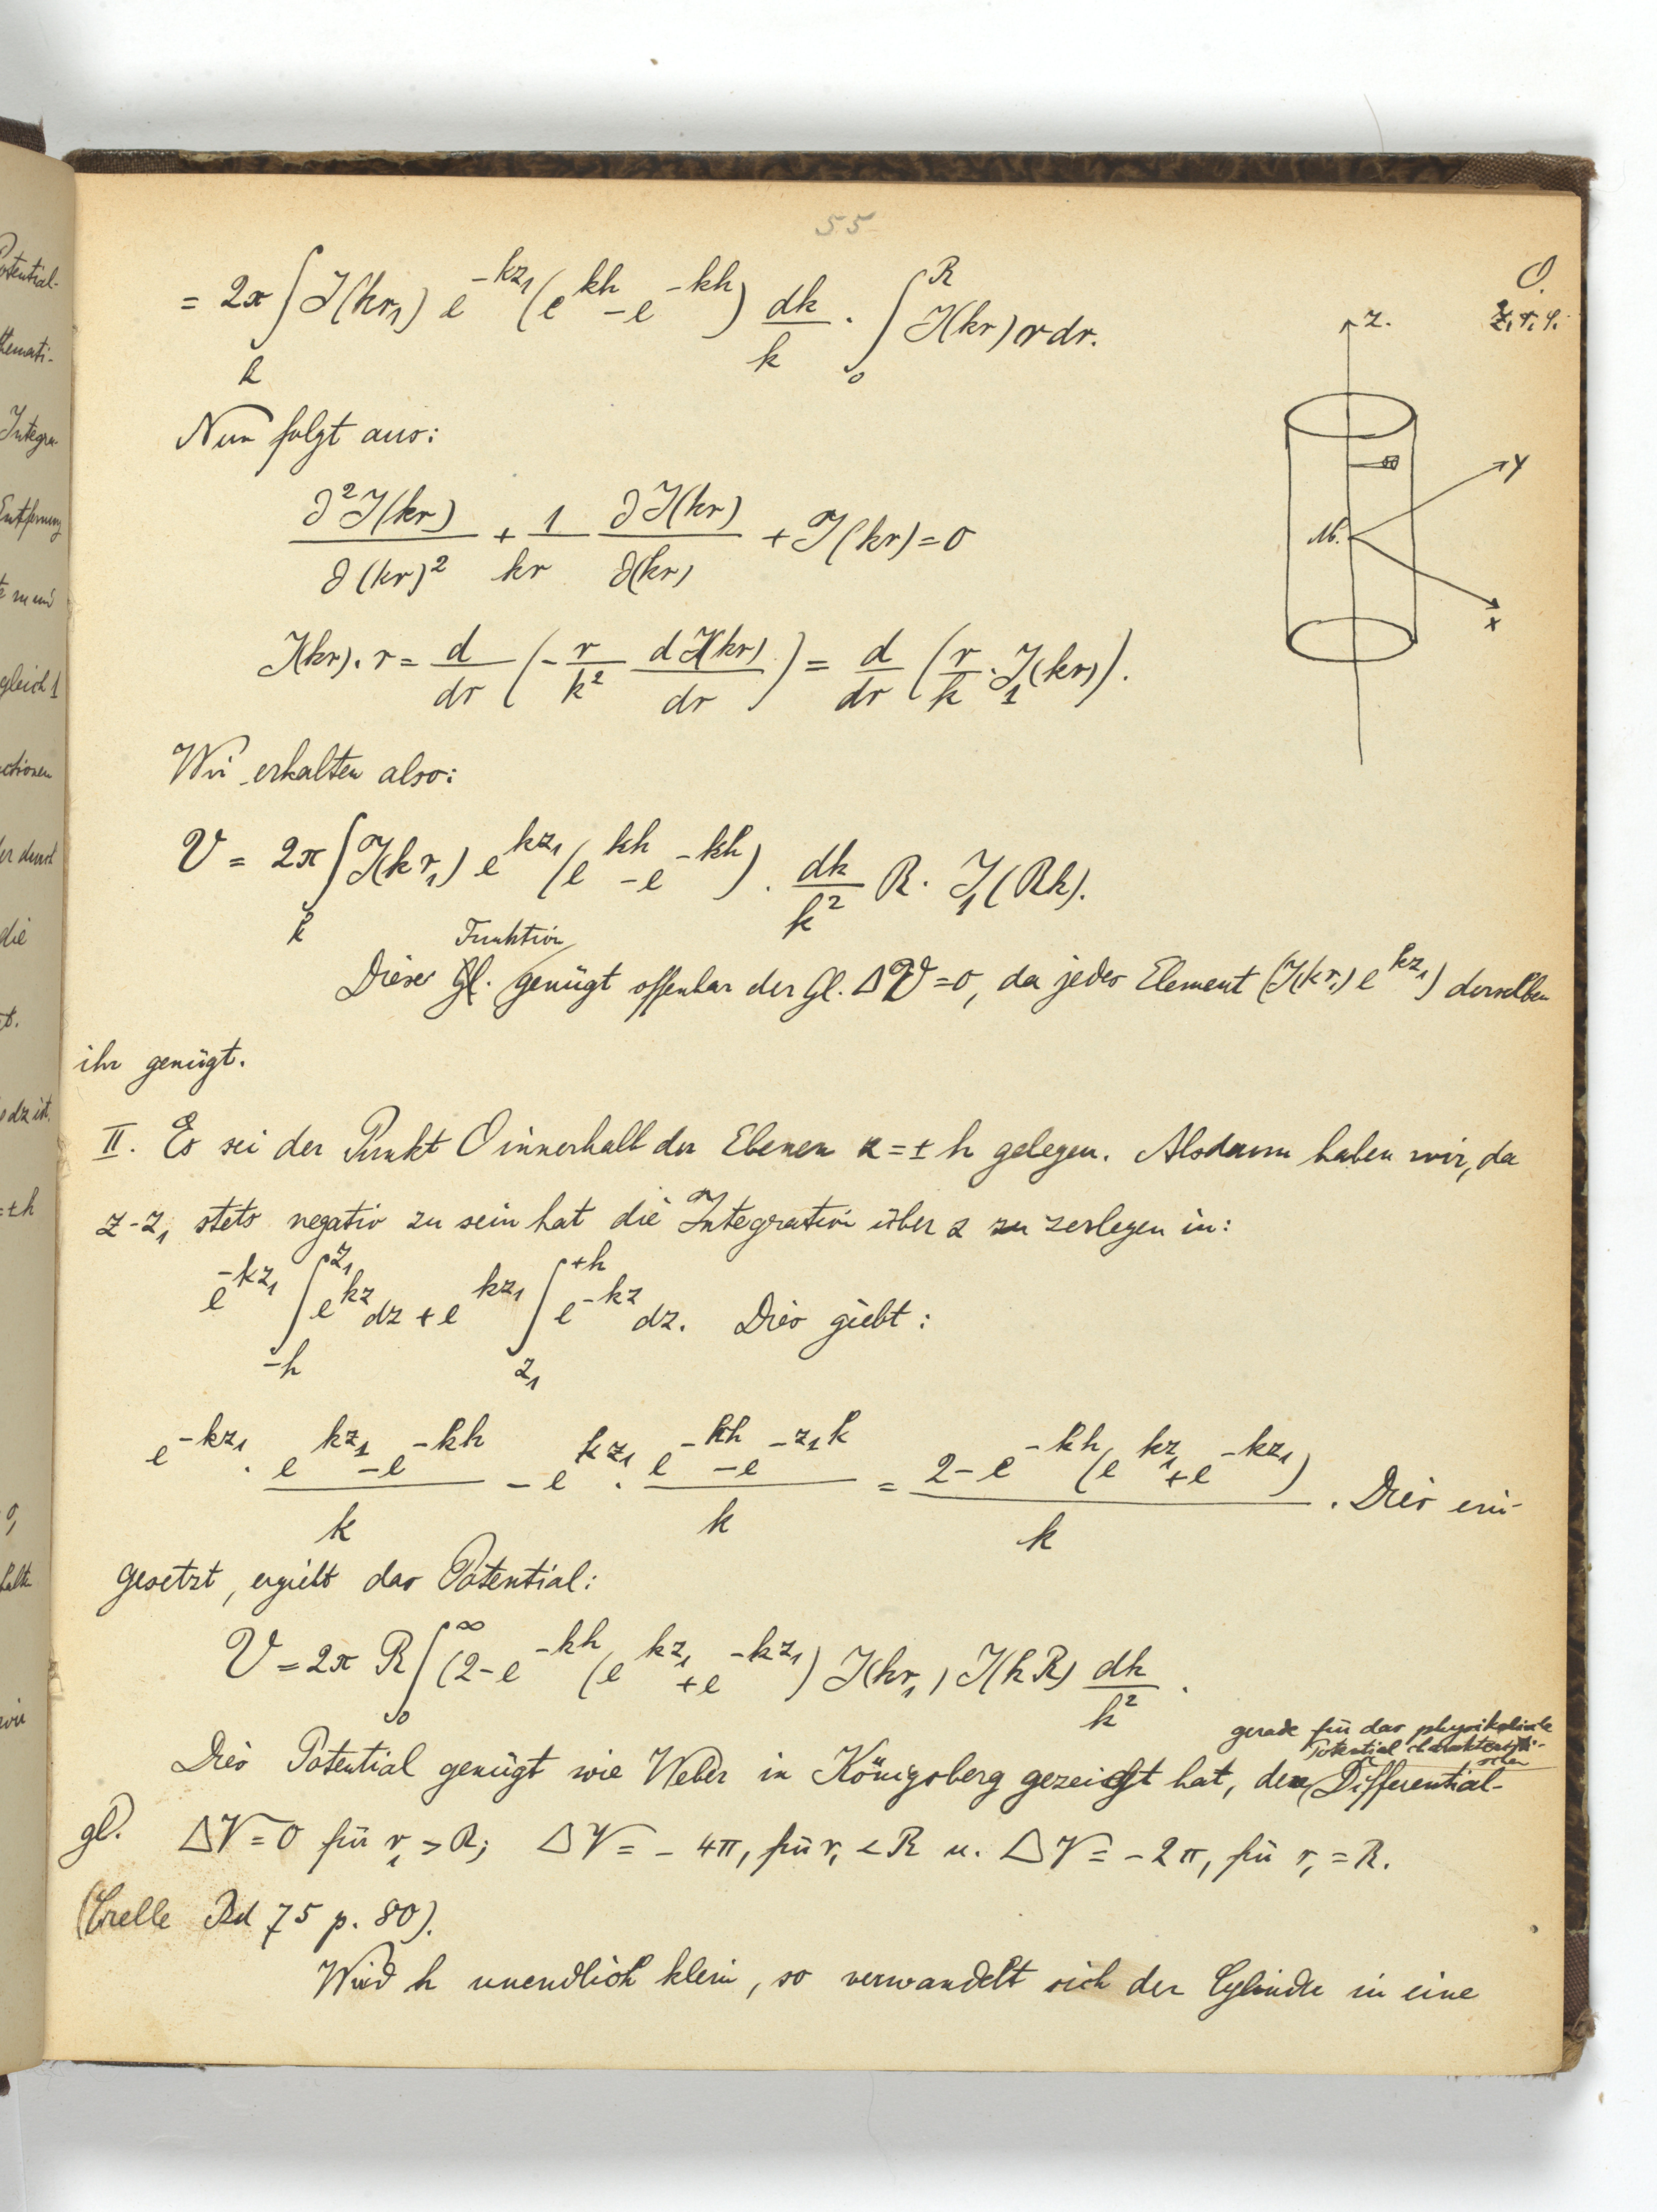 55
= 2π ∫_k J(kr₁) e^{-kz₁} (e^{kh} - e^{-kh}) dk/k · ∫_0^R J(kr) r dr.
O.
z₁ r₁ φ₁
Nun folgt aus:
∂²J(kr)/∂(kr)² + 1/kr ∂J(kr)/∂(kr) + J(kr) = 0
z.
y
M.
x
J(kr)·r = d/dr (- r/k² dJ(kr)/dr) = d/dr (r/k · J₁(kr)).
Wir erhalten also:
V = 2π ∫_k J(kr₁) e^{kz₁} (e^{kh} - e^{-kh}) · dk/k² R · J₁(Rk).
Funktion
Diese Gl. genügt offenbar der Gl. ΔV=0, da jedes Element (J(kr₁) e^{kz₁}) derselben
ihr genügt.
II. Es sei der Punkt O innerhalb der Ebenen z = ± h gelegen. Alsdann haben wir, da
z-z₁ stets negativ zu sein hat die Integration über z zu zerlegen in:
e^{-kz₁} ∫_{-h}^{z₁} e^{kz} dz + e^{kz₁} ∫_{z₁}^{+h} e^{-kz} dz. Dies giebt:
e^{-kz₁} · (e^{kz₁} - e^{-kh})/k - e^{kz₁} · (e^{-kh} - e^{-z₁k})/k = (2 - e^{-kh} (e^{kz₁} + e^{-kz₁}))/k . Dies ein-
gesetzt, ergiebt das Potential:
V = 2π R ∫_0^∞ (2 - e^{-kh} (e^{kz₁} + e^{-kz₁}) J(kr₁) J(kR) dk/k² .
gerade für das physikalische
Potential charakteristi-
schen
Dies Potential genügt wie Weber in Königsberg gezeigt hat, den Differential-
gl. ΔV = 0 für r₁ > R; ΔV = - 4π, für r₁ < R u. ΔV = - 2π, für r₁ = R.
(Crelle Bd 75 p. 80).
Wird h unendlich klein, so verwandelt sich der Cylinder in eine